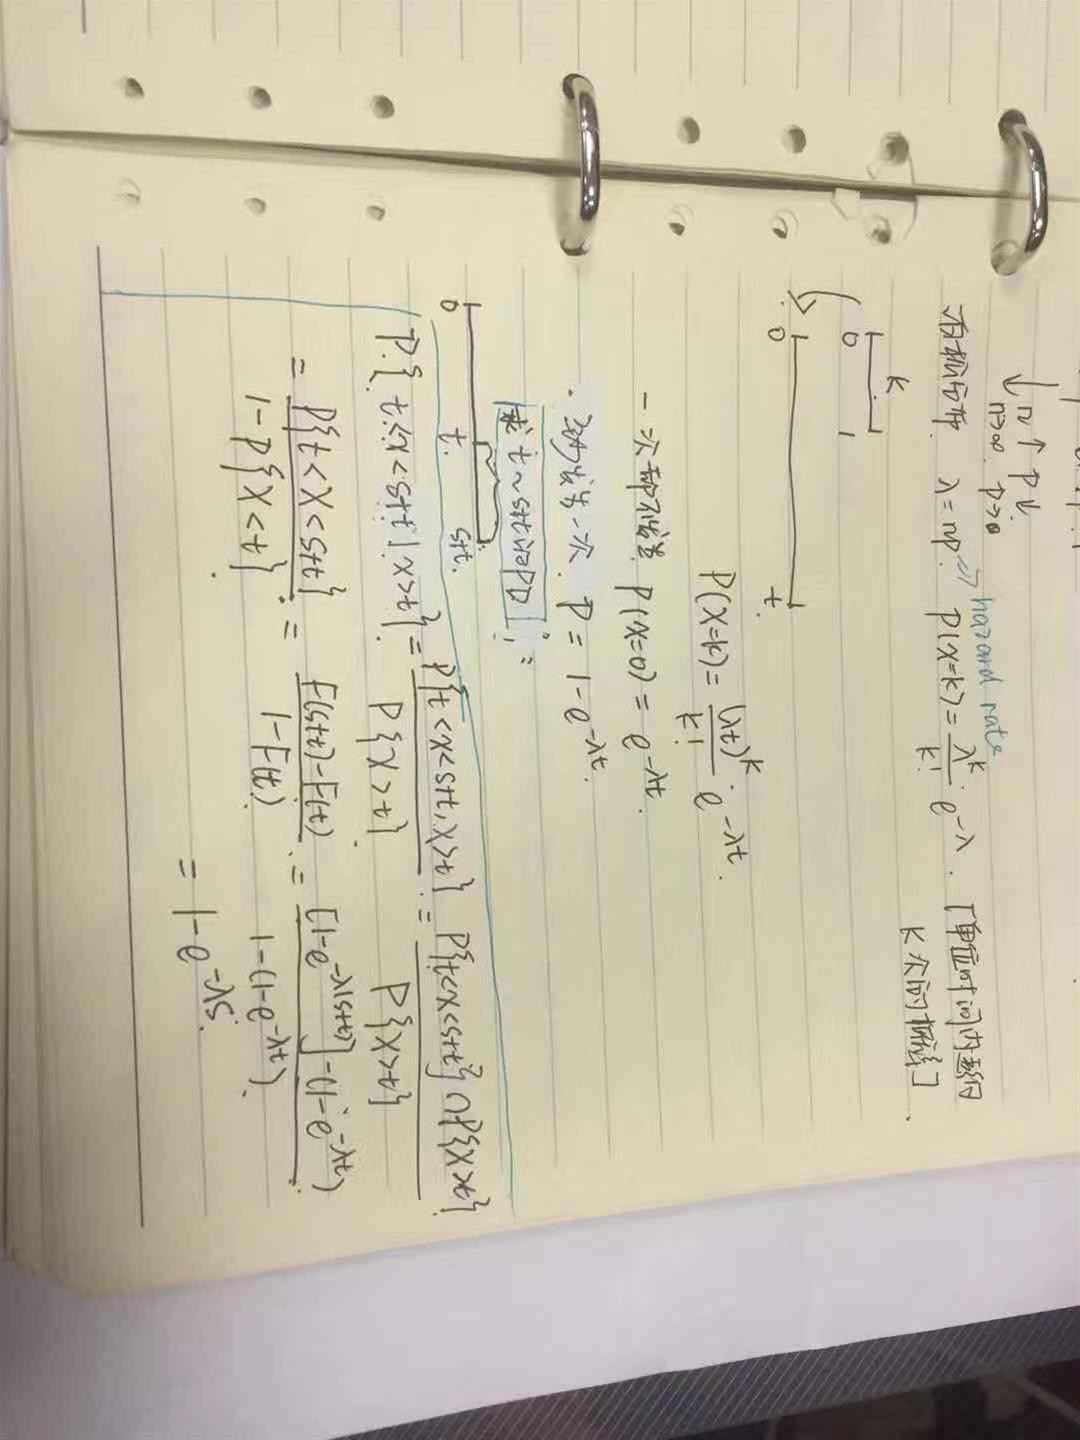 ↓ n↑ p↓
n→∞ p→0
泊松分布. λ = np → hazard rate P(X=k) = λ^k/k! · e^-λ. [单位时间内发生
K次的概率].
k
0 1
0 t
P(X=k) = (λt)^k/k! · e^-λt.
一次都不发生 P(X=0) = e^-λt.
至少发生一次. P = 1-e^-λt.
求 t~s+t 的pd
0 t. s+t.
P{t<X<s+t | X>t} = P{t<X<s+t, X>t} / P{X>t} = P{t<X<s+t}∩P{X>t} / P{X>t}
= P{t<X<s+t} / 1-P{X<t} = F(s+t)-F(t) / 1-F(t) = [1-e^-λ(s+t)]-(1-e^-λt) / 1-(1-e^-λt)
= 1-e^-λs.